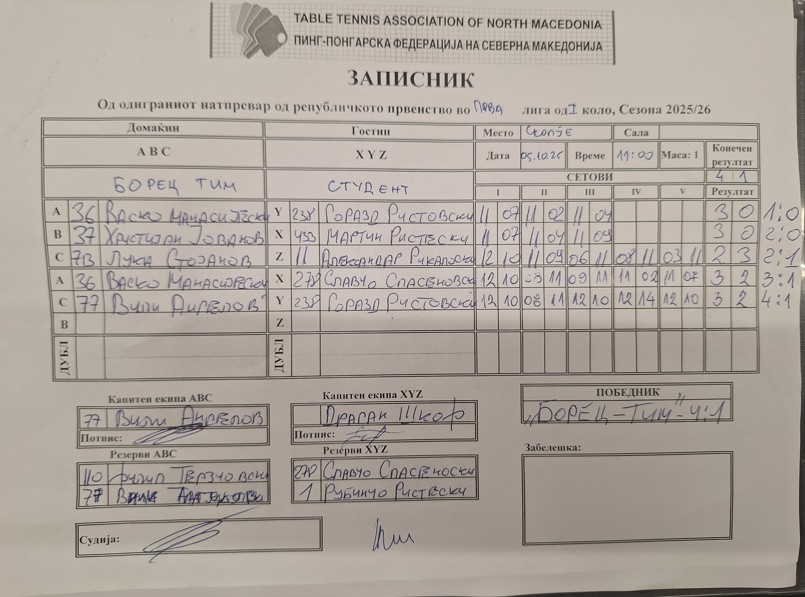 TABLE TENNIS ASSOCIATION OF NORTH MACEDONIA
ПИНГ-ПОНГАРСКА ФЕДЕРАЦИЈА НА СЕВЕРНА МАКЕДОНИЈА
ЗАПИСНИК
Од одиграниот натпревар од републичкото првенство во Прва лига од I коло, Сезона 2025/26
Домаќин Гостин Место Скопје Сала
A B C X Y Z Дата 05.10.25 Време 11:00 Маса: 1 Конечен резултат
БОРЕЦ ТИМ СТУДЕНТ СЕТОВИ 4 1
I II III IV V Резултат
A 36 Васко Манасиевски Y 238 Горазд Ристовски 11 07 11 02 11 04 3 0 1:0
B 37 Христијан Јованов X 433 Мартин Ристески 11 07 11 04 11 09 3 0 2:0
C 73 Лука Стојанов Z 11 Александар 12 10 11 09 06 11 08 11 03 11 2 3 2:1
A 36 Васко Манасиевски X 278 Славчо Спасеновски 12 10 03 11 09 11 11 02 11 07 3 2 3:1
C 77 Вили Ангелов Y 238 Горазд Ристовски 12 10 08 11 12 10 12 14 12 10 3 2 4:1
B Z
ДУБЛ ДУБЛ
Капитен екипа ABC Капитен екипа XYZ ПОБЕДНИК
77 Вили Ангелов Драган Шкоф „БОРЕЦ-ТИМ" 4:1
Потпис: Потпис:
Резерви ABC Резерви XYZ Забелешка:
110 Филип Терзиовски 278 Славчо Спасеноски
77 1 Рубинчо Ристески
Судија: